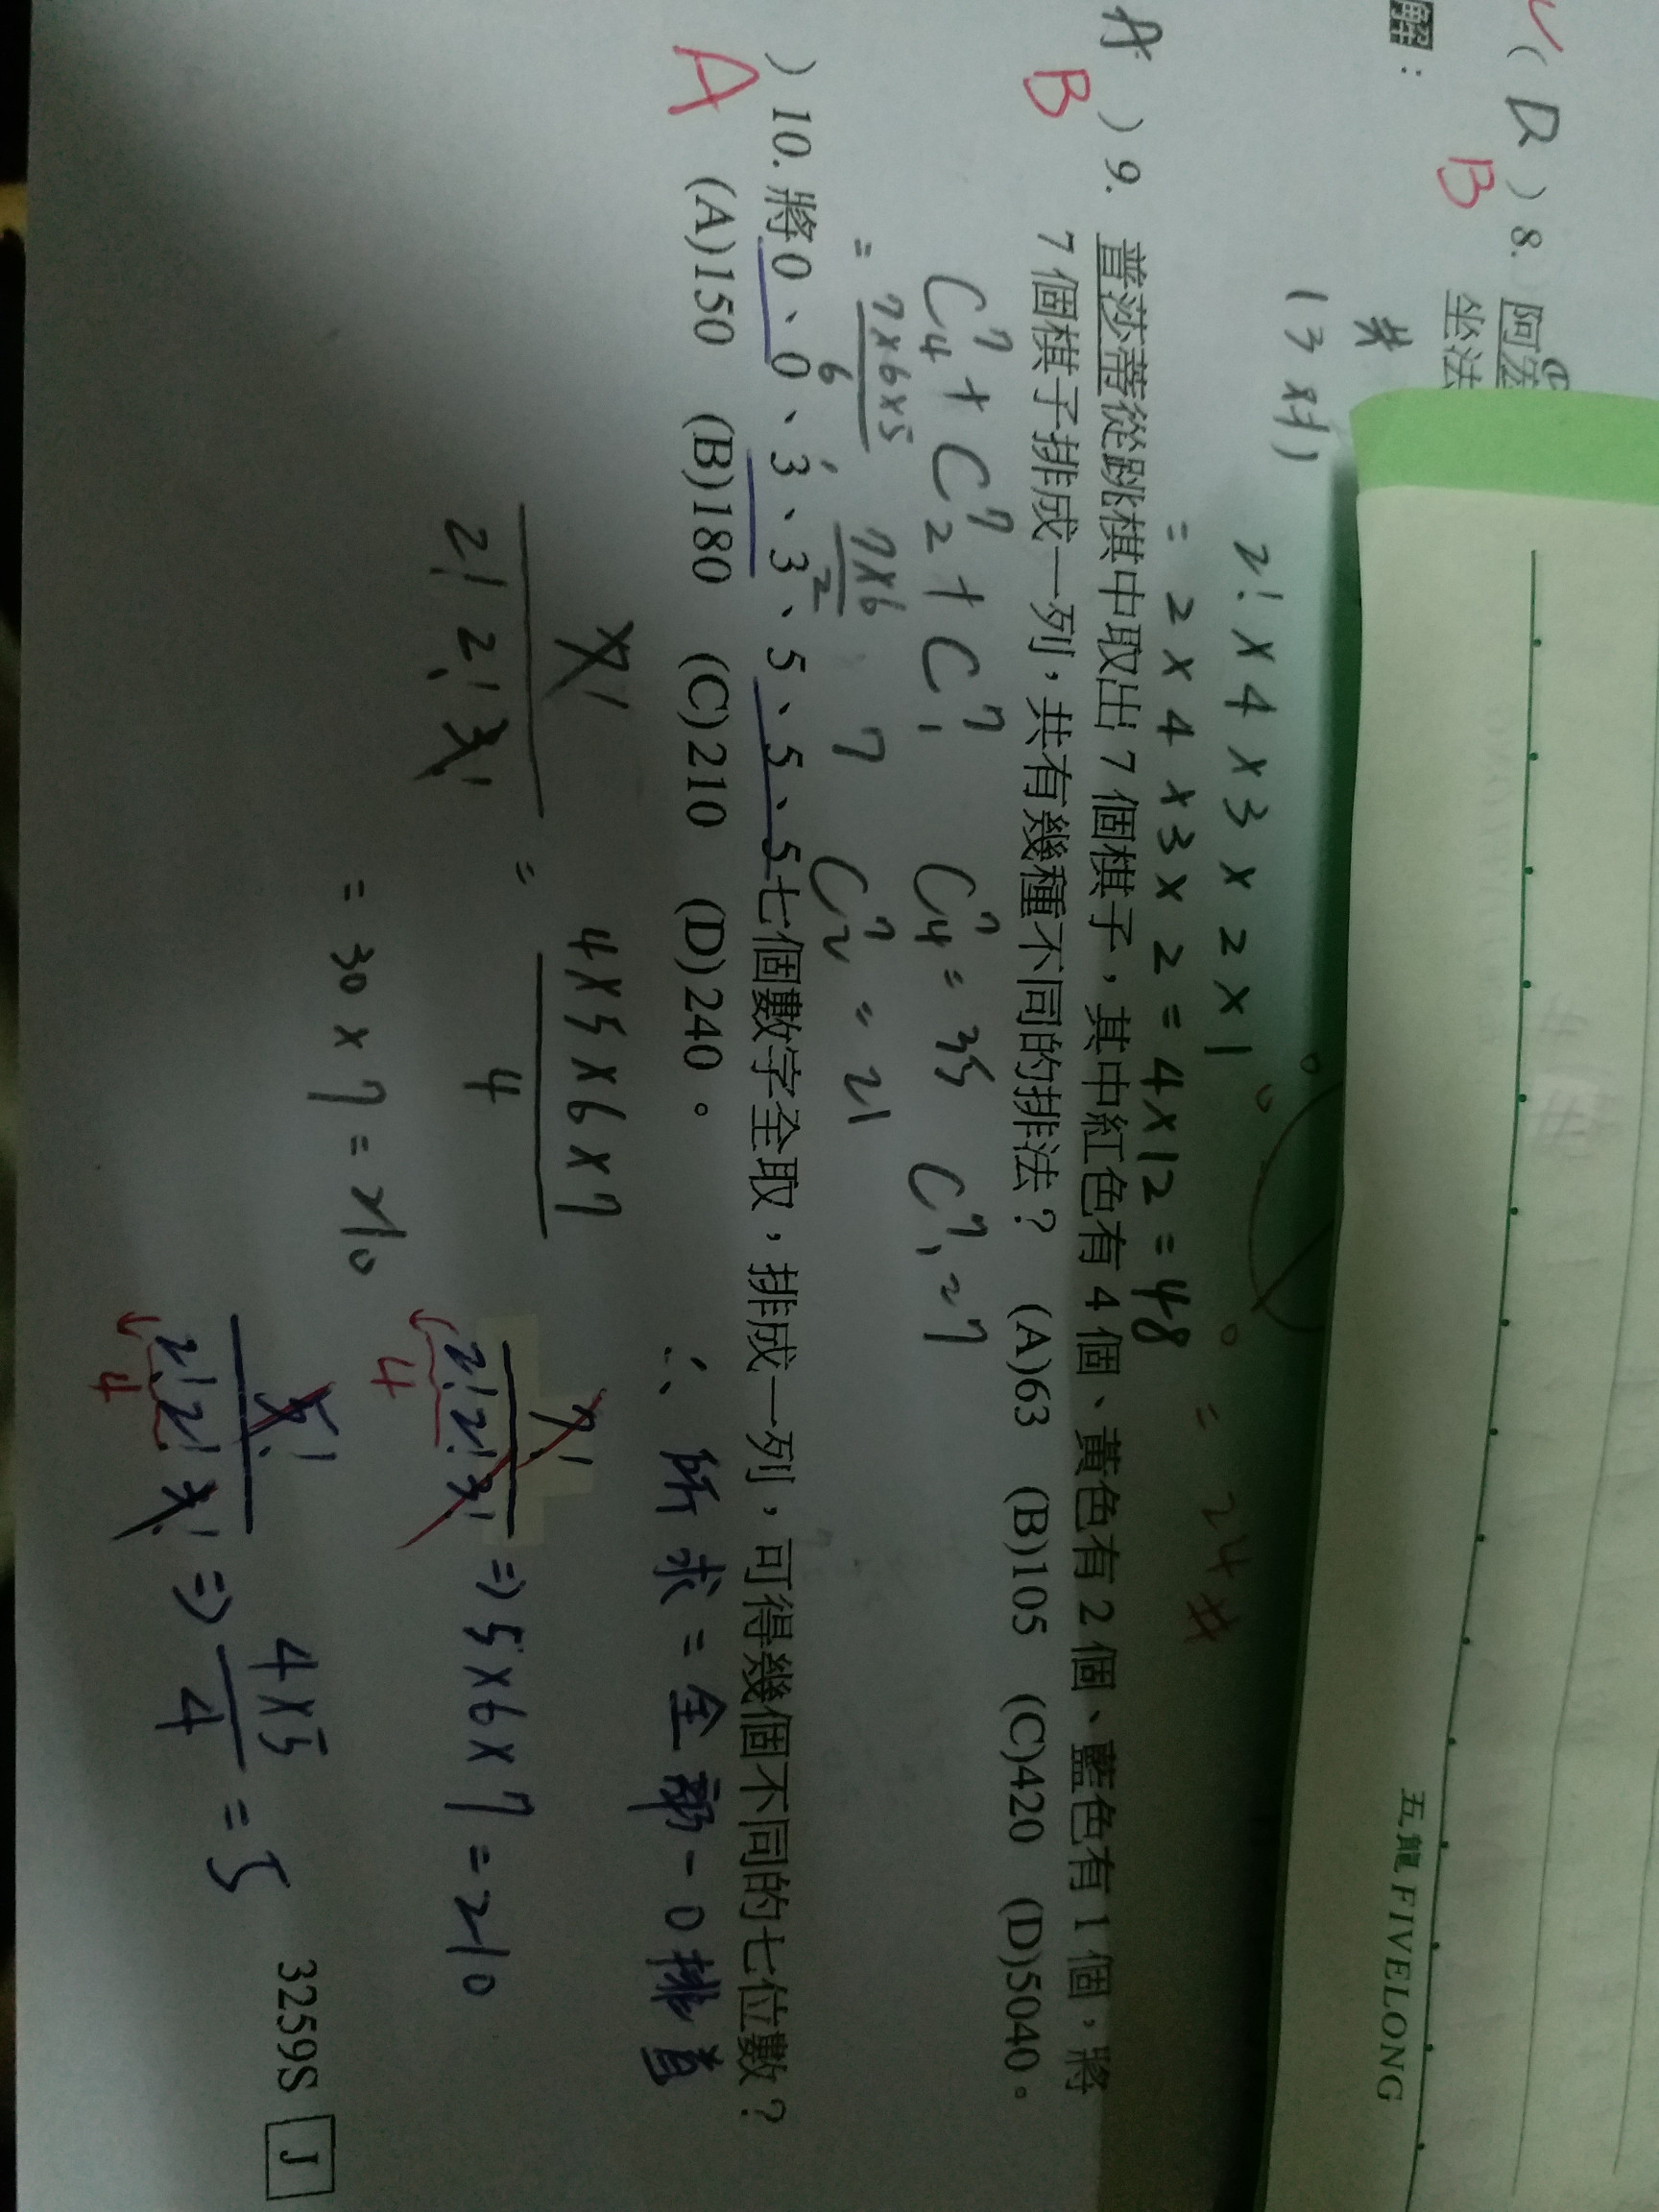 (D)8. 阿
B 坐法
解：
(3对)
2! × 4 × 3 × 2 × 1
= 2 × 4 × 3 × 2 = 4 × 12 = 48
= 24 #
五龍 FIVELONG
A )9. 普莎蒂從跳棋中取出 7 個棋子，其中紅色有 4 個、黃色有 2 個、藍色有 1 個，將
B 7 個棋子排成一列，共有幾種不同的排法？ (A)63 (B)105 (C)420 (D)5040。
C⁷₄ + C⁷₂ + C⁷₁ C⁷₄ = 35 C⁷₁ = 7
= 7×6×5 7×6 7 C⁷₂ = 21
6 2
)10. 將 0、0、3、3、5、5、5 七個數字全取，排成一列，可得幾個不同的七位數？
A (A)150 (B)180 (C)210 (D)240。
∴ 所求 = 全部 - 0排首
7! / 2!2!3! = 4×5×6×7 / 4
= 30 × 7 = 210
7! / 2!2!3! ⇒ 5×6×7 = 210
4
5! / 2!2!3! ⇒ 4×5 / 4 = 5
4
3259S J